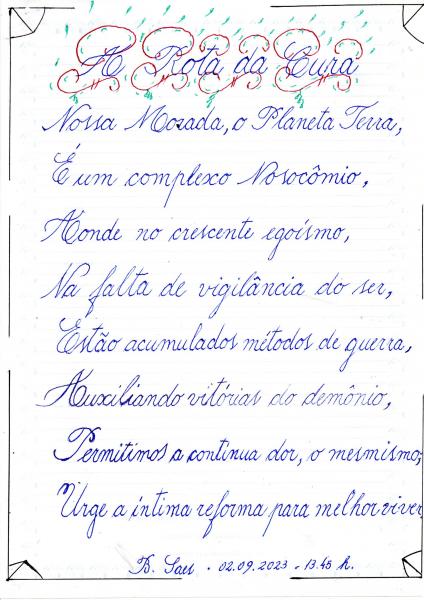 A Rota da Cura
Nossa Morada, o Planeta Terra,
É um complexo Nosocômio,
Aonde no crescente egoísmo,
Na falta de vigilância do ser,
Estão acumulados métodos de guerra,
Auxiliando vitórias do demônio,
Permitimos a contínua dor, o mesmismo;
Urge a íntima reforma para melhor viver
B. Saes - 02.09.2023 - 13.45 h.